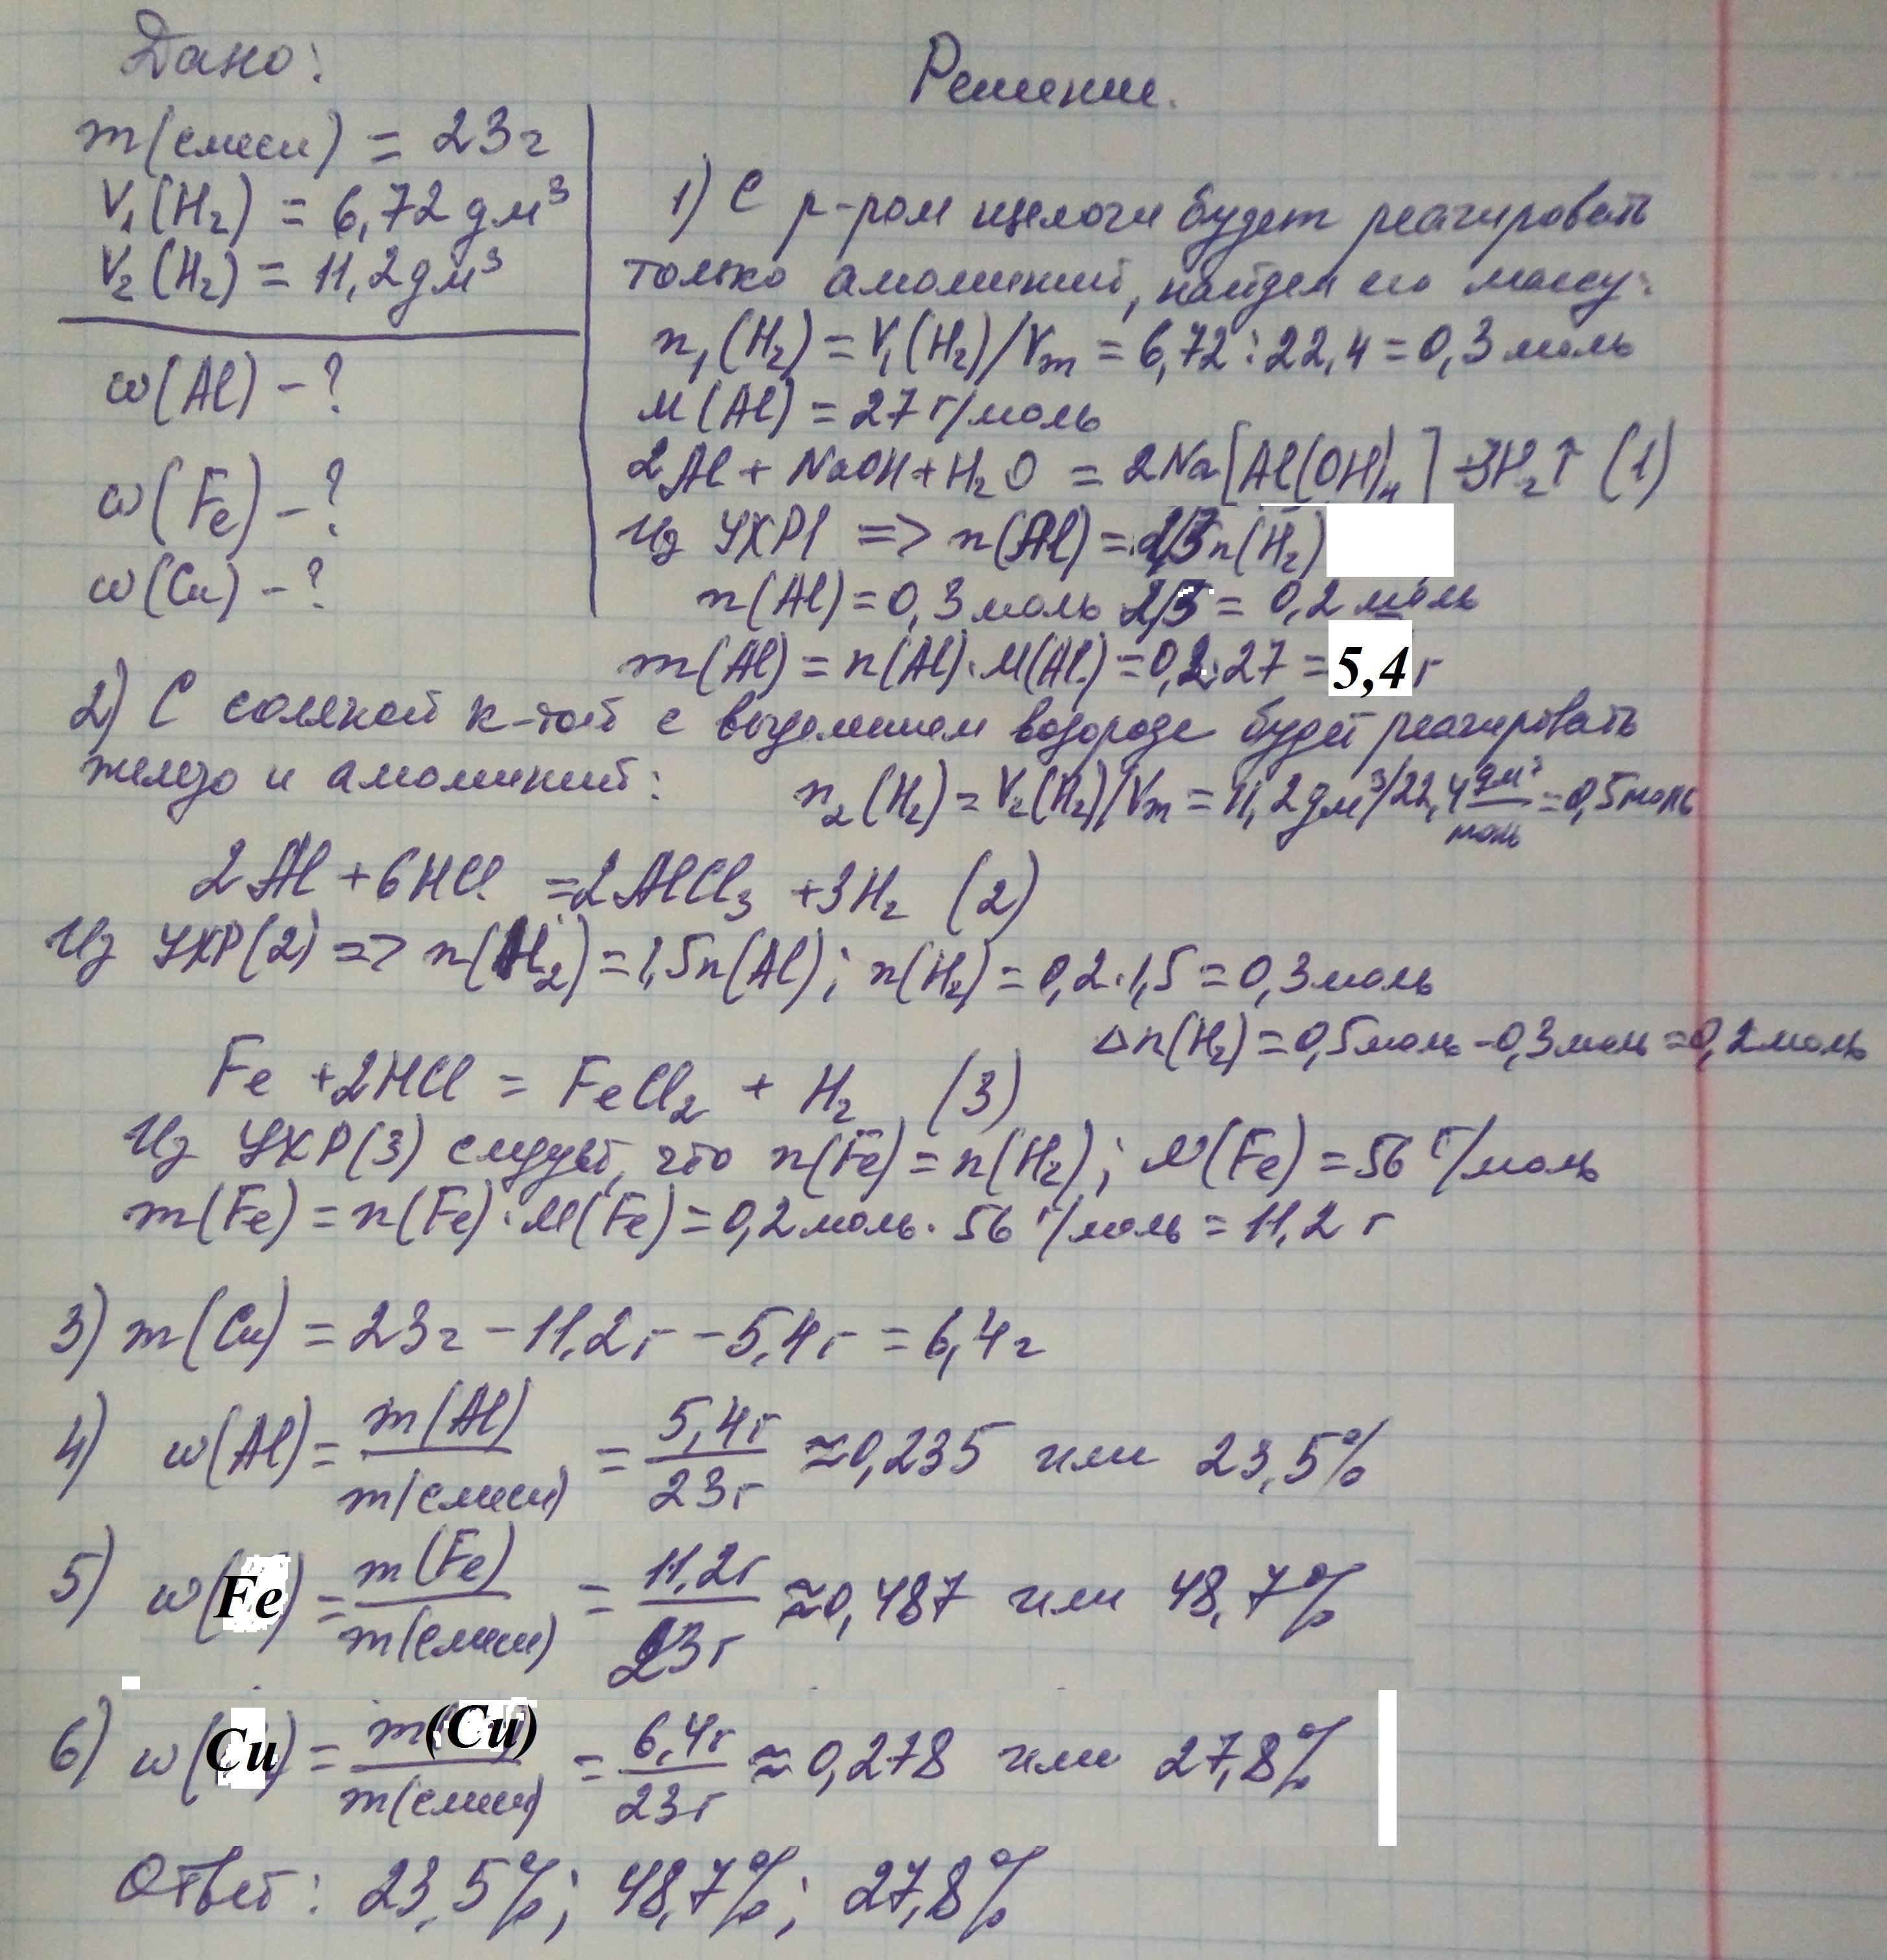 Дано:
Решение.
m(смеси) = 23г
V₁(H₂) = 6,72 дм³
V₂(H₂) = 11,2 дм³
ω(Al) – ?
ω(Fe) – ?
ω(Cu) – ?
1) С р-ром щелочи будет реагировать
только алюминий, найдем его массу:
n₁(H₂) = V₁(H₂)/Vm = 6,72 : 22,4 = 0,3 моль
M(Al) = 27 г/моль
2Al + NaOH + H₂O = 2Na[Al(OH)₄] + 3H₂↑ (1)
Из УХР1 => n(Al) = 2/3n(H₂)
n(Al) = 0,3 моль 2/3 = 0,2 моль
m(Al) = n(Al)·M(Al) = 0,2·27 = 5,4 г
2) С соляной к-той с выделением водорода будет реагировать
железо и алюминий:
n₂(H₂) = V₂(H₂)/Vm = 11,2 дм³/22,4 дм³/моль = 0,5 моль
2Al + 6HCl = 2AlCl₃ + 3H₂ (2)
Из УХР(2) => n(H₂) = 1,5n(Al); n(H₂) = 0,2·1,5 = 0,3 моль
Δn(H₂) = 0,5 моль – 0,3 моль = 0,2 моль
Fe + 2HCl = FeCl₂ + H₂ (3)
Из УХР(3) следует, что n(Fe) = n(H₂); M(Fe) = 56 г/моль
m(Fe) = n(Fe)·M(Fe) = 0,2 моль · 56 г/моль = 11,2 г
3) m(Cu) = 23г – 11,2г – 5,4г = 6,4г
4) ω(Al) = m(Al)/m(смеси) = 5,4г/23г ≈ 0,235 или 23,5%
5) ω(Fe) = m(Fe)/m(смеси) = 11,2г/23г ≈ 0,487 или 48,7%
6) ω(Cu) = m(Cu)/m(смеси) = 6,4г/23г ≈ 0,278 или 27,8%
Ответ: 23,5%; 48,7%; 27,8%